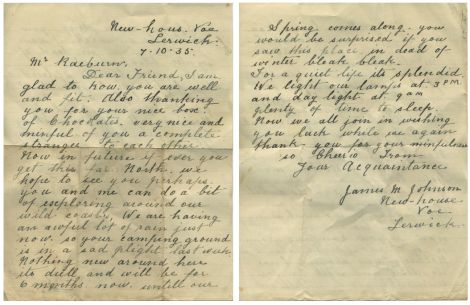 New-house. Voe
Lerwick.
7-10-35.
Mr Raeburn.
Dear Friend, I am
glad to know you are well
and fit. Also thanking
you for your nice box
of Chocolates. very nice and
minful of you a complete
stranger to each other
Now in future if ever you
get this far North. we
hope to see you perhaps
you and me can do a bit
of exsploring around our
wild coasts. We are having
an awful lot of rain just
now. so your camping ground
is in a sad plight last week
Nothing new around here
its dull and will be for
6 months now. untill our
Spring comes along. you
would be surprised if you
saw this place in dead of
winter bleak bleak.
For a quiet life its splendid
We light our lamps at 3 PM
and day light at 9 am
plenty of time to sleep.
Now we all join in wishing
you luck while we again
thank you for your minfulness
so Cheerio From
Your Acquaintance
James M. Johnson
New-house
Voe
Lerwick.